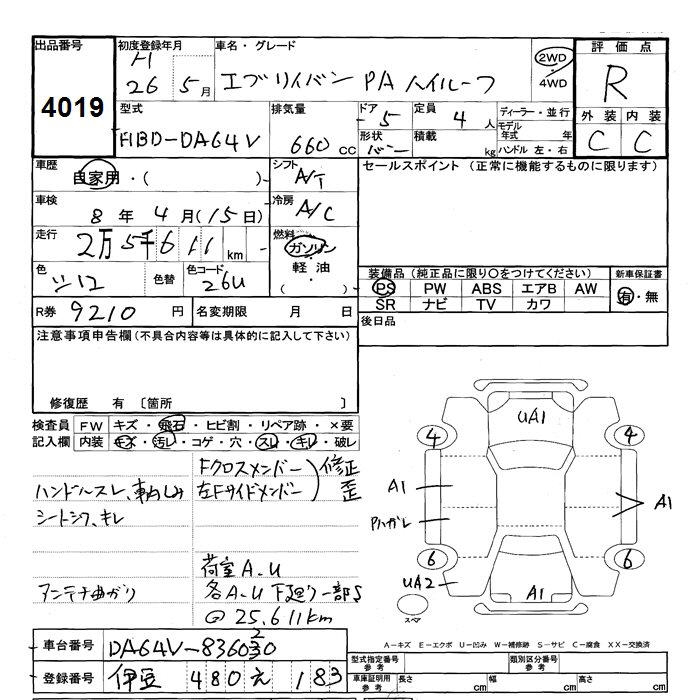 出品番号
4019
初度登録年月
H
26 5月
車名・グレード
エブリイバン PA ハイルーフ
2WD
4WD
評価点
R
外装 内装
C C
型式
HBD-DA64V
排気量
660 cc
ドア
5
形状
バン
定員
4人
積載
kg
ディーラー・並行
モデル年式 年
ハンドル 左・右
車歴
自家用・( )
シフト
A/T
セールスポイント (正常に機能するものに限ります)
車検
8年 4月(15日)
冷房
A/C
走行
2万5千611km
燃料
ガソリン
・
軽・油
( )
色
シロ
色替
色コード
26U
装備品 (純正品に限り〇をつけてください)
PS PW ABS エアB AW
SR ナビ TV カワ
新車保証書
有・無
R券 9210円
名変期限 月 日
後日品
注意事項申告欄(不具合内容等は具体的に記入して下さい)
修復歴 有 〔箇所 〕
検査員記入欄
FW キズ・飛石・ヒビ割・リペア跡・×要
内装 キズ・汚レ・コゲ・穴・スレ・キレ・破レ
Fクロスメンバー
左Fサイドメンバー
修正
歪
ハンドルスレ、車内しみ
シートシワ、キレ
アンテナ曲がり
荷室A.U
各A.U 下廻り一部S
@ 25.611km
UA1
4
4
A1
Pハガレ
A1
6
6
UA2
A1
スペア
A-キズ E-エクボ U-凹み W-補修跡 S-サビ C-腐食 XX-交換済
車台番号 DA64V-836030
2
登録番号 伊豆 480 え 183
型式指定番号
参考
類別区分番号
参考
車庫証明用
参考
長さ cm
幅 cm
高さ cm